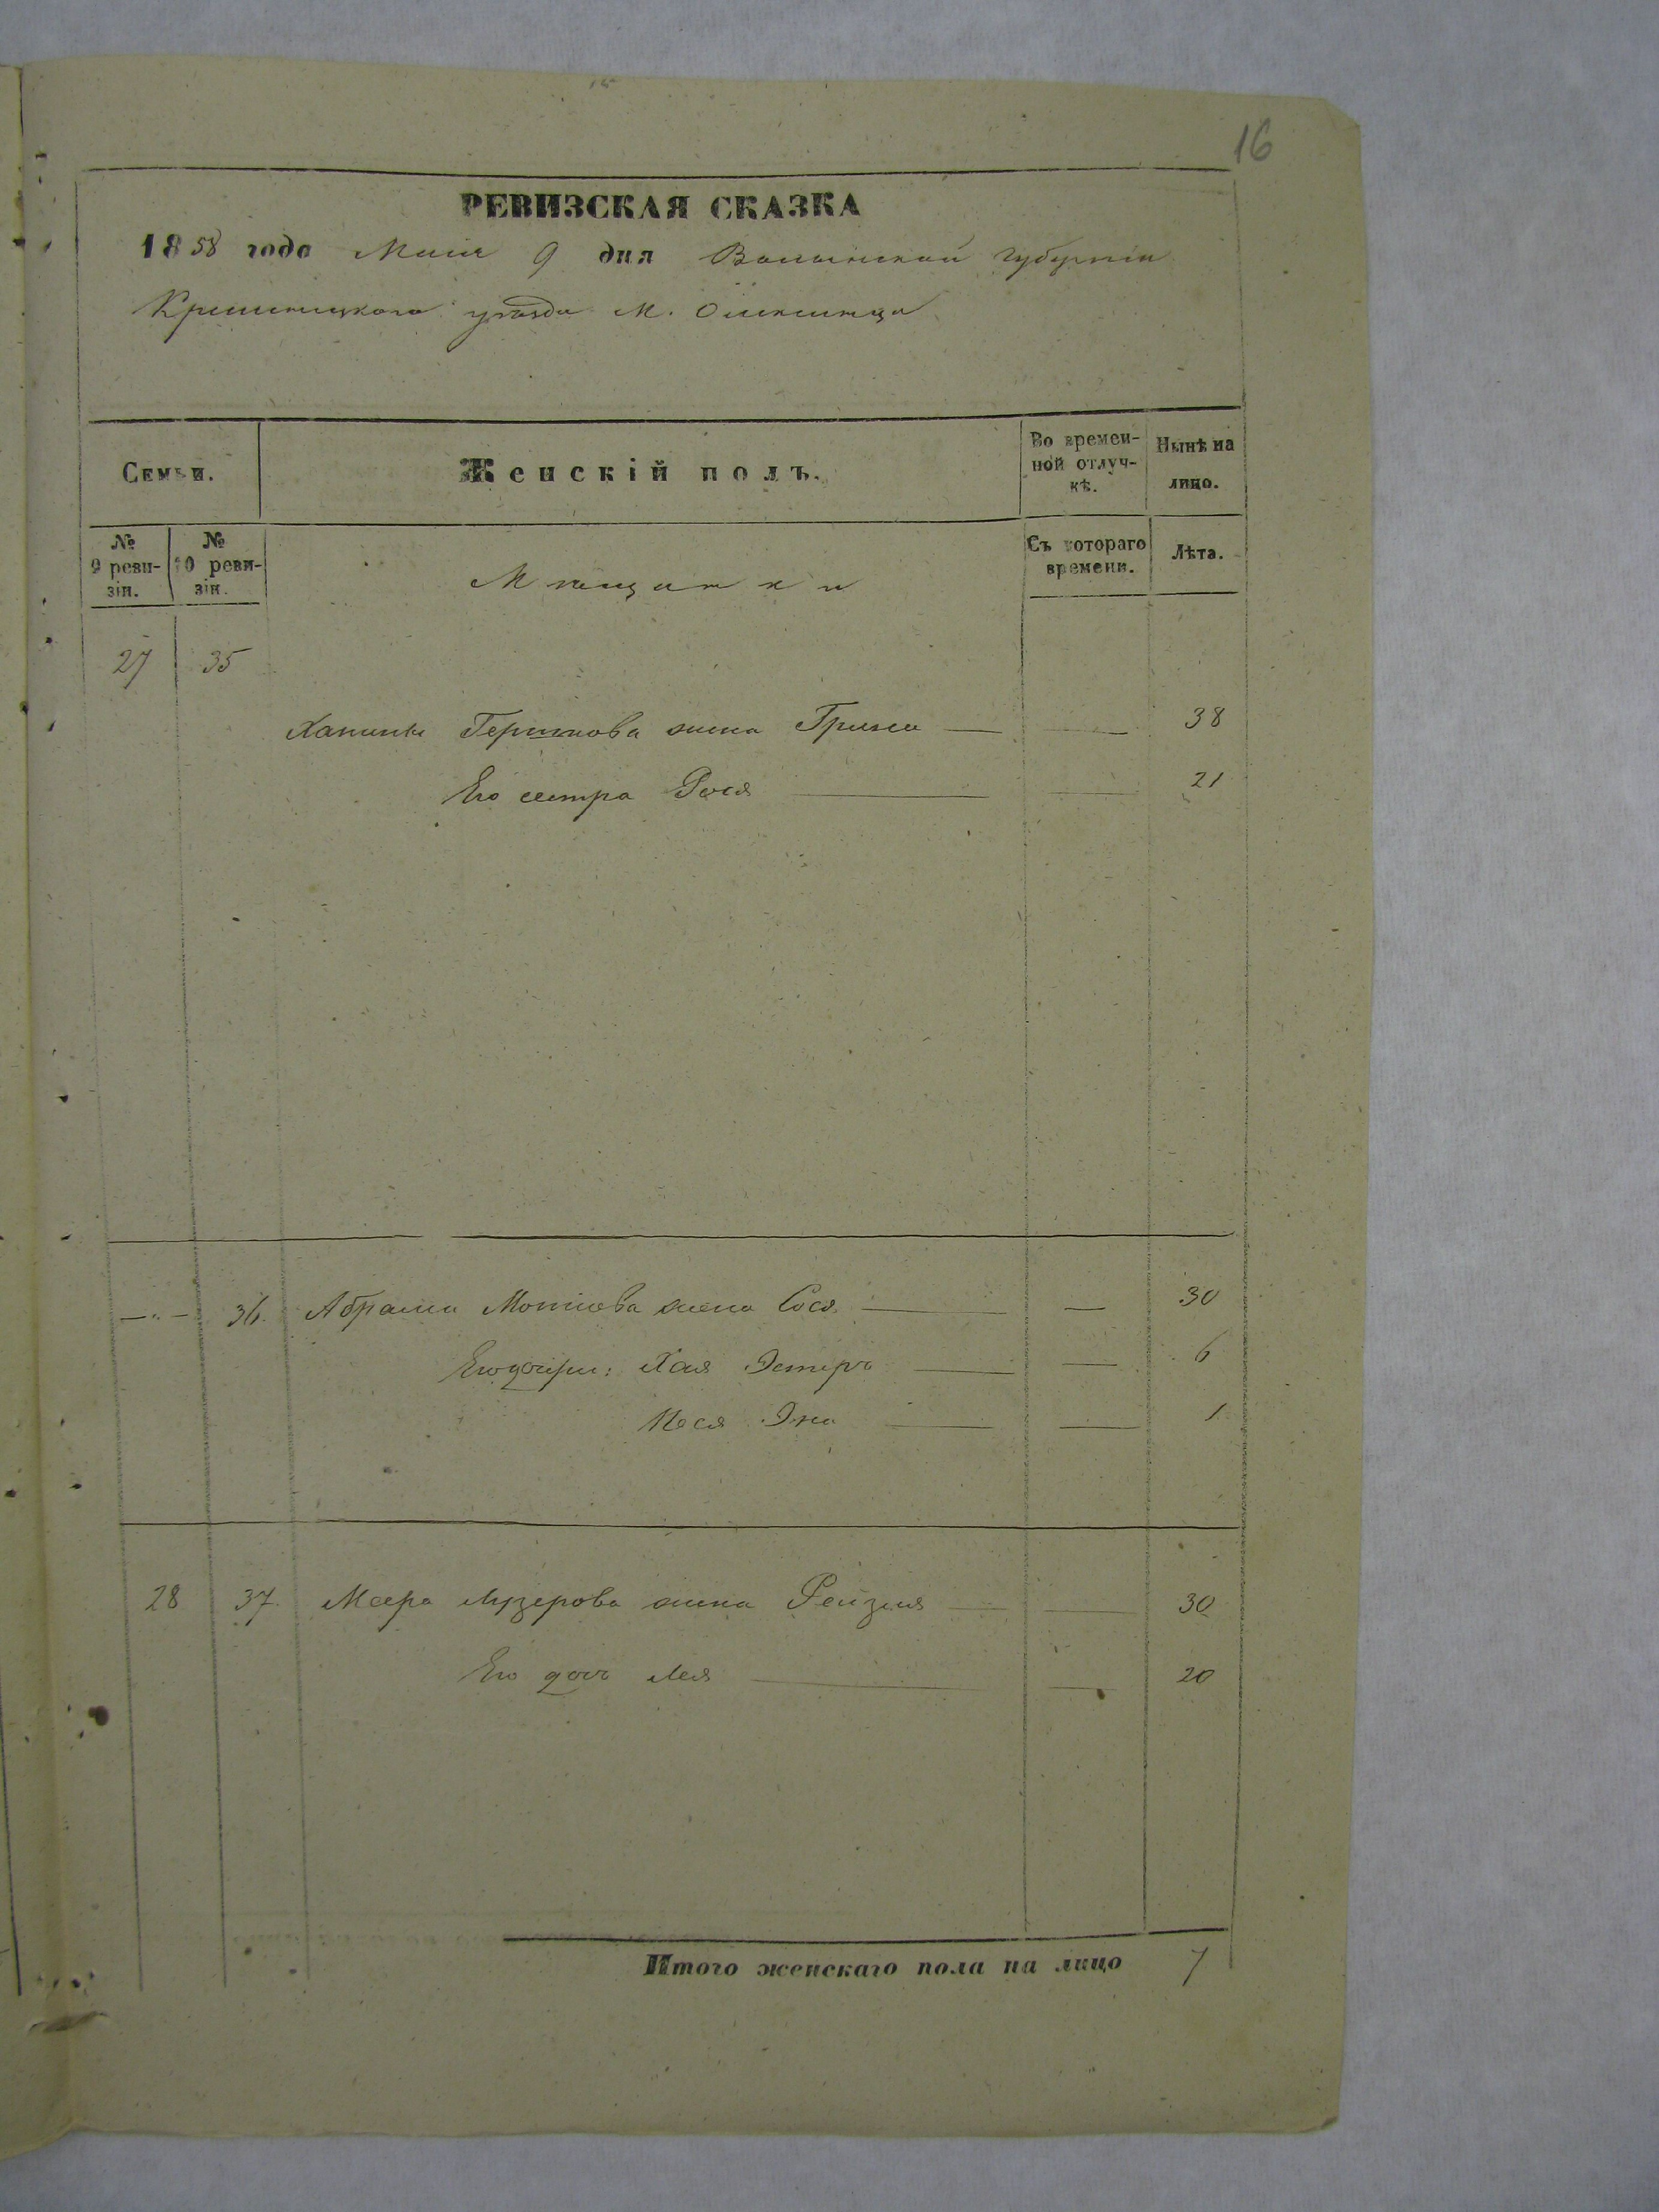 16
РЕВИЗСКАЯ СКАЗКА
1858 года Мая 9 дня Волынской губерніи
Кременецкаго уѣзда М. Олексинца
Семьи.
Женскій полъ.
Во времен-
ной отлуч-
кѣ.
Нынѣ на
лицо.
№
9 реви-
зіи.
№
10 реви-
зіи.
Мѣщанки
Съ котораго
времени.
Лѣта.
27 35
Гершкова жена — — 38
Его сестра Рося — — 21
— „ — 36. Абрама Мотіова жена Сося — — 30
Его дочери: Хая Эстеръ — — 6
Песя — — 1
28 37. Меера Лузерова жена Рейзля — — 30
Его дочь Лея — — 20
Итого женскаго пола на лицо 7